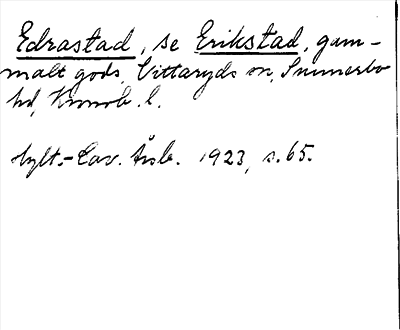 Edrastad, se Erikstad, gam-
malt gods, Vittaryds sn, Sunnerbo
hd, Kronob. l.
Hylt.-Cav. årsb. 1923, s. 65.